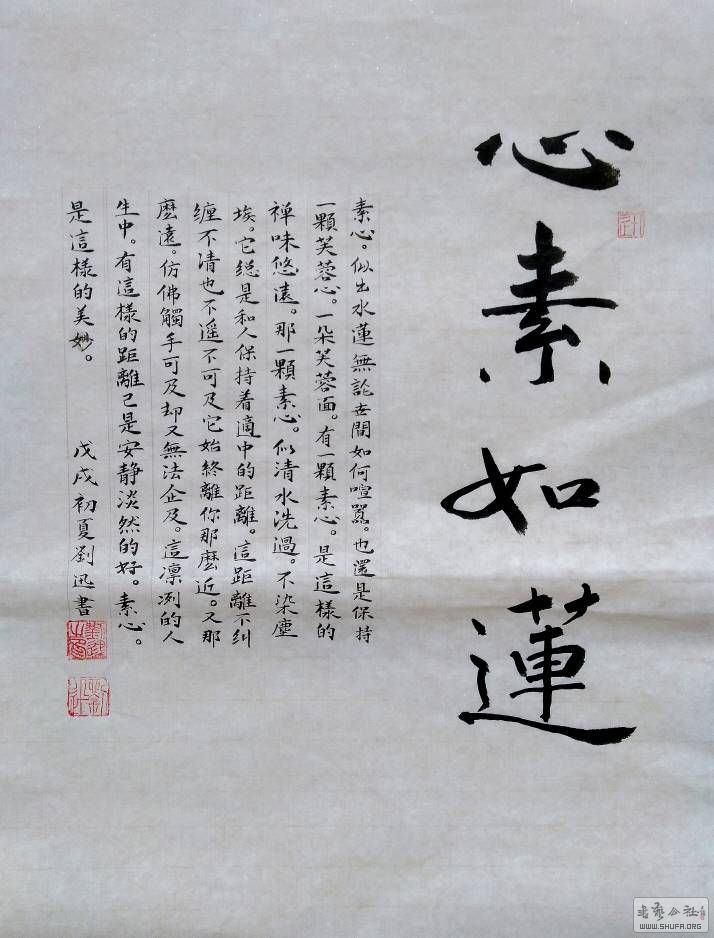 心素如蓮
素心。似出水蓮無論世間如何喧囂。也還是保持
一顆芙蓉心。一朵芙蓉面。有一顆素心。是這樣的
禅味悠遠。那一顆素心。似清水洗過。不染塵
埃。它總是和人保持着適中的距離。這距離不糾
缠不清也不遥不可及它始終離你那麽近。又那
麽遠。仿佛觸手可及却又無法企及。這凛冽的人
生中。有這樣的距離已是安静淡然的好。素心。
是這樣的美妙。
戊戌初夏劉迅書
WWW.SHUFA.ORG